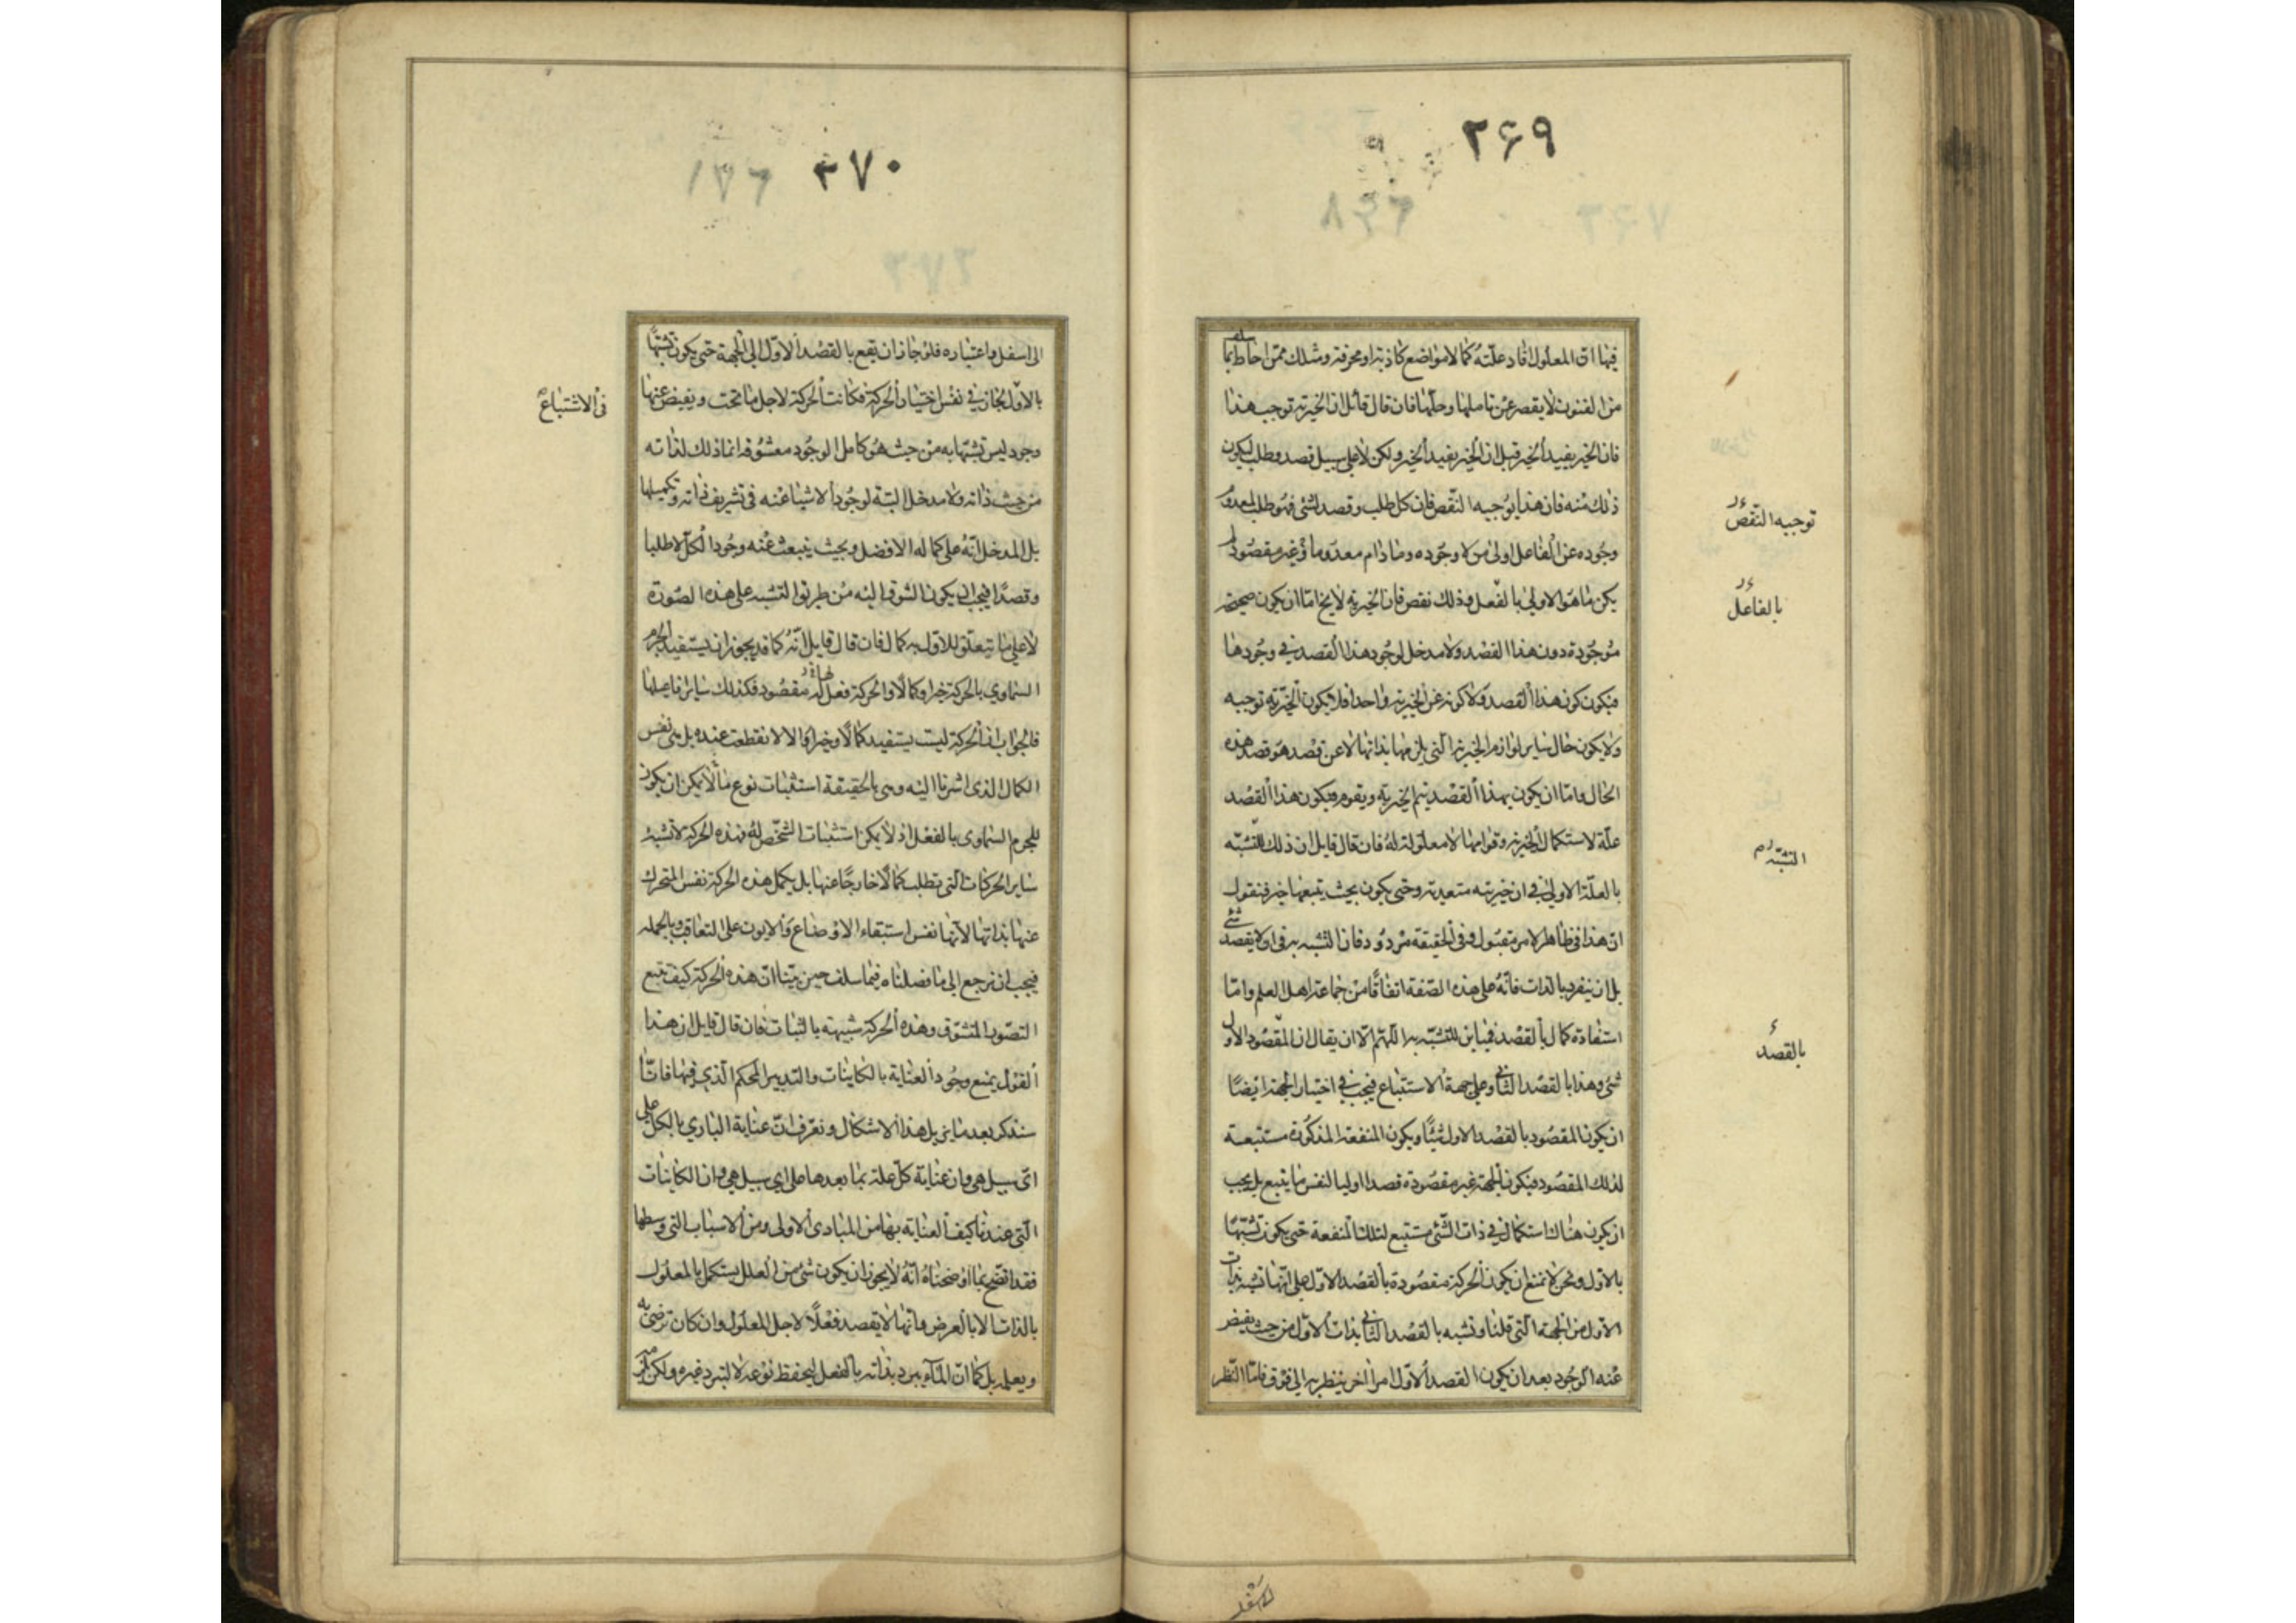 ۲۶۹
فيها ان المعلول افاد علته كمالا مواضع كاذبة او محرفة وسلك ممن احاط بما سلف
من الفنون لا يقصر عن تاملها وحلها فان قال قائل ان الخيرية توجب هذا
فان الخير يفيد الخير قيل ان الخير يفيد الخير ولكن لا على سبيل قصد وطلب ليكون
ذلك منه فان هذا يوجبه النقص فان كل طلب وقصد لشئ فهو طلب لمعدوم
وجوده عن الفاعل اولى من لا وجوده وما دام معدوما وغير مقصود لم
يكن ما هو الاولى بالفعل وذلك نقص فان الخيرية لا يخ اما ان يكون صحيحة
موجودة دون هذا القصد ولا مدخل لوجود هذا القصد في وجودها
فيكون كون هذا القصد ولا كونه عن الخيرية واحدا فلا يكون الخيرية توجبه
ولا يكون حال ساير لوازم الخيرية التي يلزمها بذاتها لا عن قصد هو قصد هذه
الحال واما ان يكون بهذا القصد يتم الخيرية ويقوم فيكون هذا القصد
علة لاستكمال الخيرية وقوامها لا معلولة له فان قال قايل ان ذلك للتشبه
بالعلة الاولى في ان خيريته متعدية وحتى يكون بحيث يتبعها خير فنقول
ان هذا في ظاهر الامر مقبول وفي الحقيقة مردود فان التشبه به في ان لا يقصد شئ
بل ان ينفرد بالذات فانه على هذه الصفة اتفاقا من جماعة اهل العلم واما
استفادة كمال بالقصد فمباين للتشبه به اللهم الا ان يقال ان المقصود الاول
شئ وهذا بالقصد الثاني وعلى جهة الاستتباع فيجب في اختيار الجهة ايضا
ان يكون المقصود بالقصد الاول شيئا ويكون المنفعة المذكورة مستتبعة
لذلك المقصود فيكون الجهة غير مقصودة قصدا اوليا لنفس ما يتبع بل يجب
ان يكون هناك استكمال في ذات الشئ مستتبع لتلك المنفعة حتى يكون تشبها
بالاول ونحن لا نمنع ان يكون الحركة مقصودة بالقصد الاول على انها تشبه بذات
الاول من الجهة التي قلنا وتشبه بالقصد الثاني بذات الاول من حيث يفيض
عنه الوجود بعد ان يكون القصد الاول امرا اخر ينظر به الى فوق فاما النظر
توجيه النقص
بالفاعل
التشبه
بالقصد
۲۷۰
الى اسفل واعتباره فلو جاز ان يقع بالقصد الاول الى الجهة حتى يكون تشبها
بالاول لجاز في نفس اختيار الحركة فكانت الحركة لاجل ما تحت ويفيض عنها
وجود ليس تشبها به من حيث هو كامل الوجود معشوقه انما ذلك لذاته
من حيث ذاته ولا مدخل البتة لوجود الاشيا عنه في تشريف ذاته وتكميلها
بل المدخل انه على كماله الافضل وبحيث ينبعث عنه وجود الكل لا طلبا
وقصدا فيجب ان يكون الشوق اليه من طريق التشبه على هذه الصورة
لا على ما يتعلق للاول به كمال فان قال قايل انه كما قد يجوز ان يستفيد الجرم
السماوي بالحركة خيرا وكمالا والحركة فعل له مقصود فكذلك ساير افاعيلها
فالجواب ان الحركة ليست يستفيد كمالا وخيرا والا لانقطعت عنده بل هي نفس
الكمال الذي اشرنا اليه وهي بالحقيقة استثبات نوع ما لا يمكن ان يكون
للجرم السماوي بالفعل اذ لا يمكن استثبات الشخص له فهذه الحركة لا تشبه
ساير الحركات التي تطلب كمالا خارجا عنها بل يكمل هذه الحركة نفس المتحرك
عنها بذاتها لانها نفس استبقاء الاوضاع والايون على التعاقب وبالجملة
فيجب ان نرجع الى ما فصلناه فيما سلف حين بينا ان هذه الحركة كيف تتبع
التصور المتشوق وهذه الحركة شبيهة بالثبات فان قال قايل ان هذا
القول يمنع وجود العناية بالكاينات والتدبير المحكم الذي فيها فانا
سنذكر بعد ما يزيل هذا الاشكال ونعرف ان عناية الباري بالكل على
اي سبيل هي وان عناية كل علة بما بعدها على اي سبيل هي وان الكاينات
التي عندنا كيف العناية بها من المبادي الاولى ومن الاسباب التي وسطها
فقد اتضح بما اوضحناه انه لا يجوز ان يكون شئ من العلل يستكمل بالمعلول
بالذات الا بالعرض وانها لا يقصد فعلا لاجل المعلول وان كان ترضى به
ويعلمه بل كما ان الماء يبرد بذاته بالفعل ليحفظ نوعه لا ليبرد غيره ولكن يلزمه
في الاستتباع